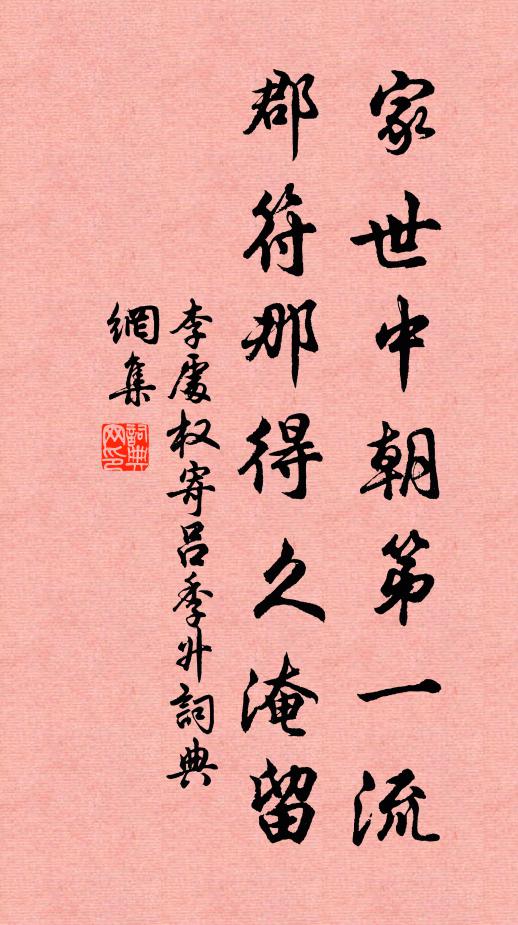 家世中朝第一流
郡符那得久淹留
李處权寄吕季升詞典
網集
詞典网印